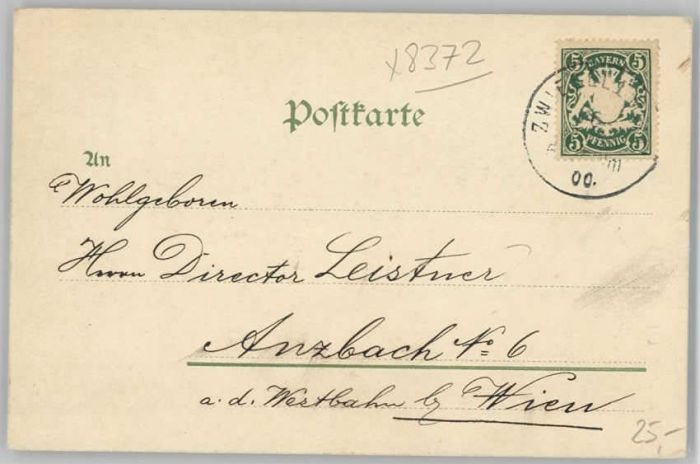 x8372
5 BAYERN 5
5 PFENNIG 5
ZWIESEL
00.
Postkarte
An
Wohlgeboren
Herrn Director Leistner
Anzbach No. 6
a. d. Westbahn by Wien
25,-